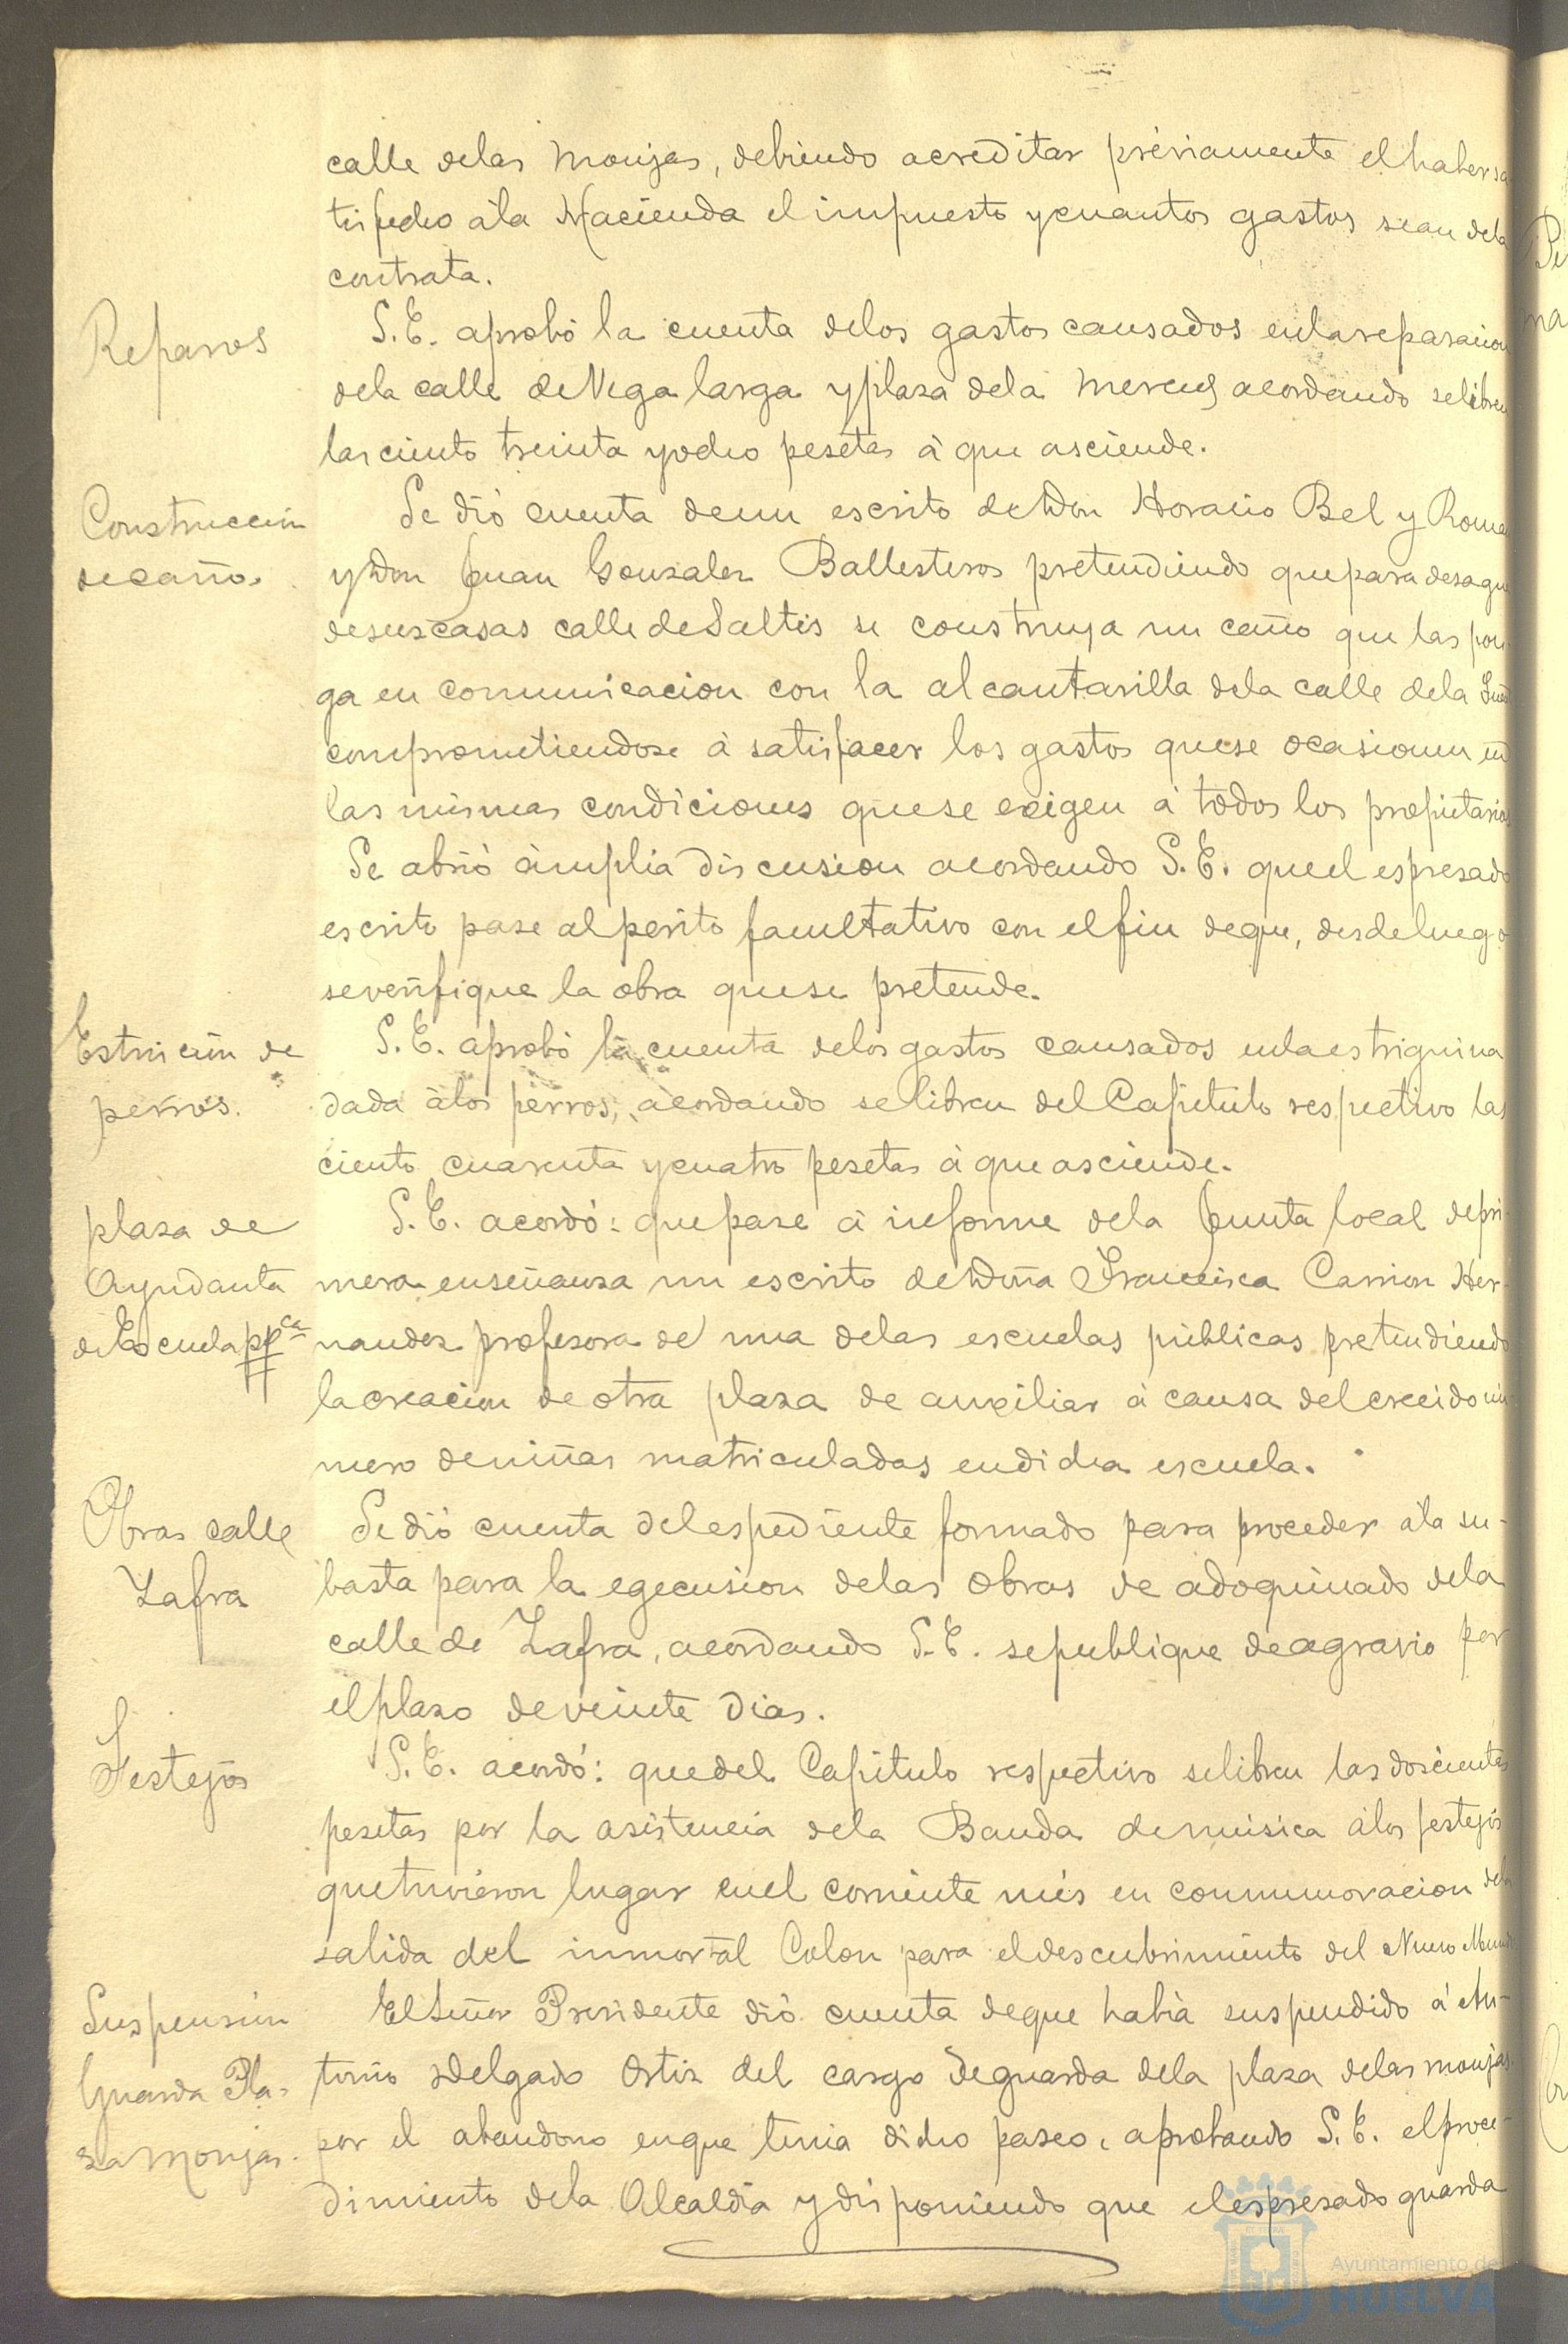 calle de las Monjas, debiendo acreditar préviamente el haber sa
tisfecho á la Hacienda el impuesto y cuantos gastos sean de la
contrata.
Reparos
S. E. aprobó la cuenta de los gastos causados en la reparacion
de la calle de Vega larga y plaza de la Merced acordando se libren
las ciento treinta y ocho pesetas á que asciende.
Construccion
de caño.
Se dió cuenta de un escrito de Don Horacio Bel y Roman
y Don Juan Gonzalez Ballesteros pretendiendo que para desague
de sus casas calle de Saltés se construya un caño que las pon
ga en comunicacion con la alcantarilla de la calle de la
comprometiendose á satisfacer los gastos que se ocasionen en
las mismas condiciones que se exigen á todos los propietarios
Se abrió ámplia discusion acordando S. E. que el espresado
escrito pase al perito facultativo con el fin de que, desde luego
se verifique la obra que se pretende.
Estricnina de
perros.
S. E. aprobó la cuenta de los gastos causados en la estriquina
dada á los perros, acordando se libren del Capitulo respectivo las
ciento cuarenta y cuatro pesetas á que asciende.
plaza de
Ayudanta
de Escuela ppca
S. E. acordó: que pase á informe de la Junta local de pri-
mera enseñanza un escrito de Doña Francisca Carrion Her-
nandez profesora de una de las escuelas públicas pretendiendo
la creacion de otra plaza de auxiliar á causa del crecido nú-
mero de niñas matriculadas en dicha escuela.
Obras calle
Zafra
Se dió cuenta del espediente formado para proceder á la su-
basta para la egecusion de las obras de adoquinado de la
calle de Zafra, acordando S. E. se publique de agravio por
el plazo de veinte dias.
Festejos
S. E. acordó: que del Capitulo respectivo se libren las doscientas
pesetas por la asistencia de la Banda de música á los festejos
que tuvieron lugar en el corriente més en conmemoracion de la
salida del inmortal Colon para el descubrimiento del Nuevo Mundo
Suspension
Guarda Pla-
za Monjas.
El Señor Presidente dió cuenta de que habia suspendido á An-
tonio Delgado Ortiz del cargo de guarda de la plaza de las monjas
por el abandono en que tenia dicho paseo, aprobando S. E. el proce-
dimiento de la Alcaldia y disponiendo que el espresado guarda
Ayuntamiento de
HUELVA